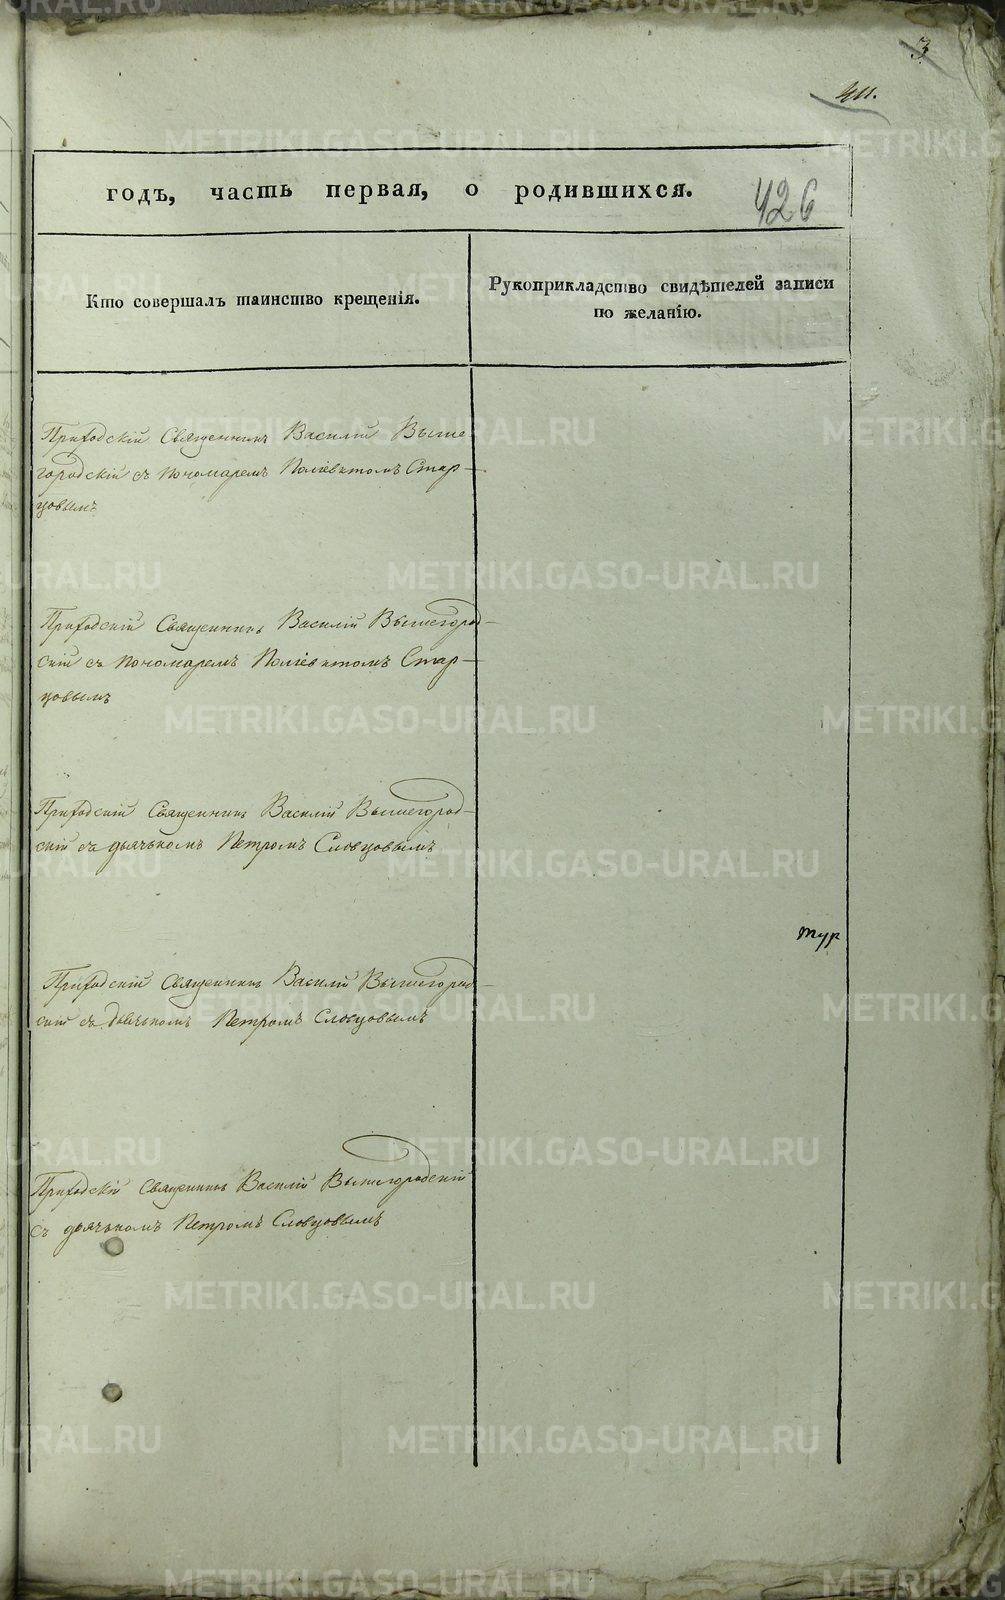 3
411.
годъ, часть первая, о родившихся.
426
Кто совершалъ таинство крещенія.
Рукоприкладство свидѣтелей записи
по желанію.
Приходскій Священникъ Василій Выше
городскій съ пономаремъ Полиевктомъ Стар-
цовымъ
Приходскій Священникъ Василій Вышегород-
скій съ пономаремъ Полиевктомъ Стар-
цовымъ
Приходскій Священникъ Василій Вышегород-
скій съ дьячькомъ Петромъ Словцовымъ
тур
Приходскій Священникъ Василій Вышегород-
скій съ дьячькомъ Петромъ Словцовымъ
Приходскій Священникъ Василій Вышегородскій
съ дьячькомъ Петромъ Словцовымъ
METRIKI.GASO-URAL.RU